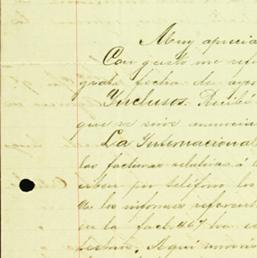 Muy aprecia
Con gusto me refe
grata fecha de ayer
Inclusos. Recibí
que se sirve anuncia
La Internacional
las facturas relativas á
por teléfono los
de los informes referent
en la fact 467 ha
Aquí